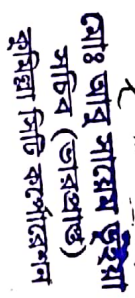 মোঃ আবু সায়েম ভূঁইয়া
সচিব (ভারপ্রাপ্ত)
কুমিল্লা সিটি কর্পোরেশন